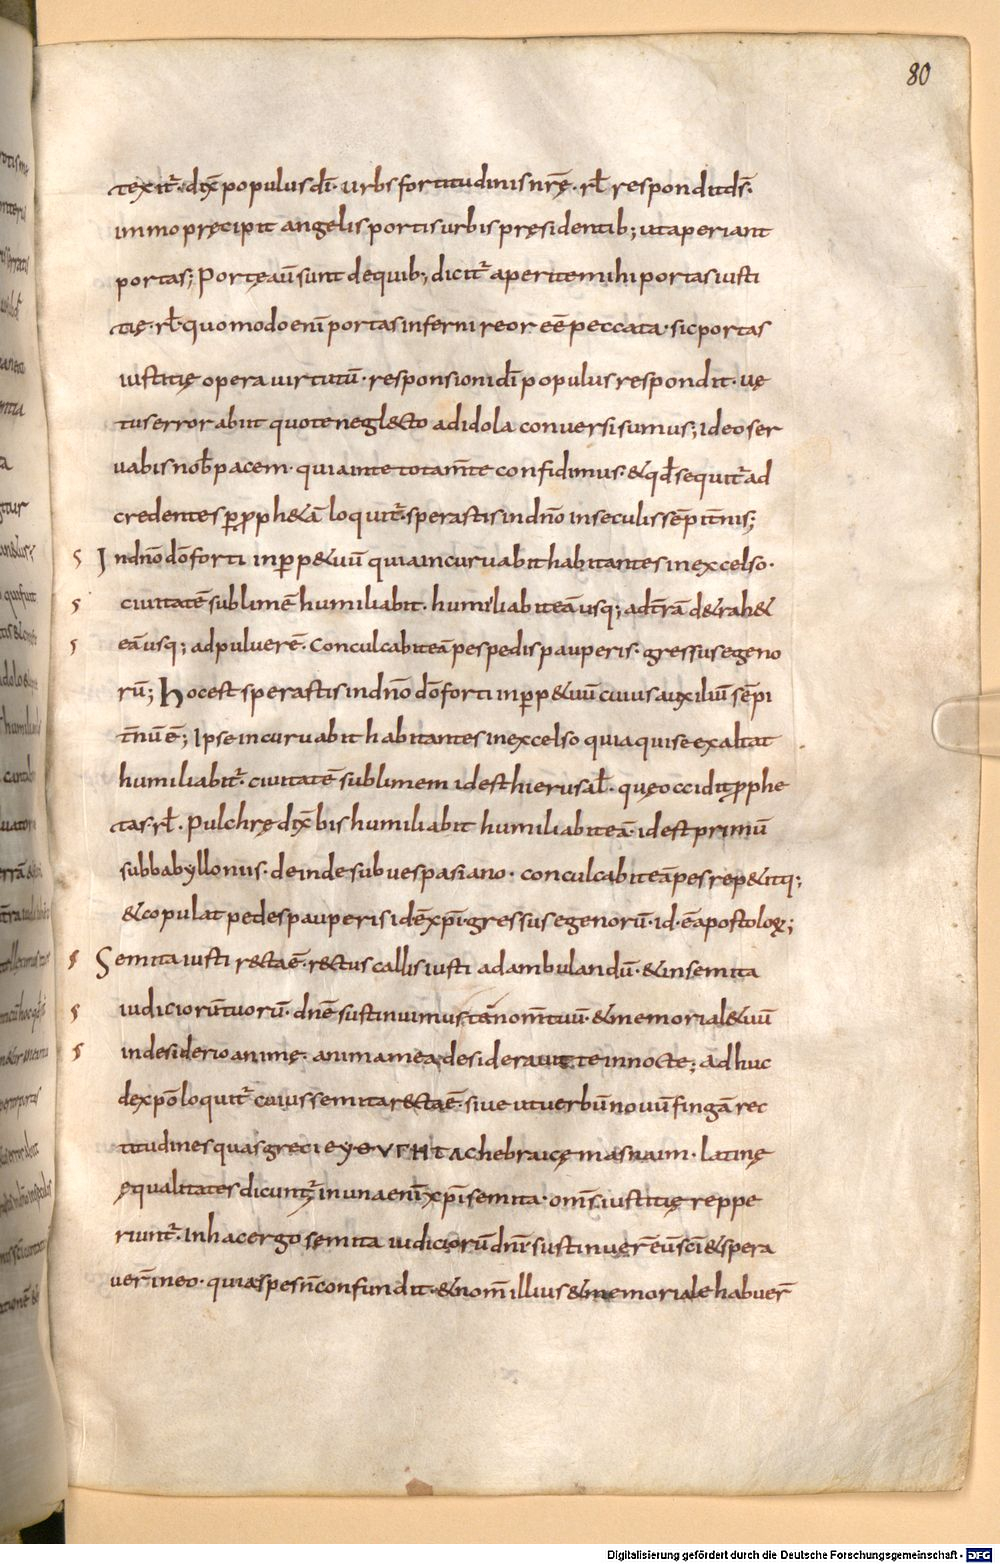 80
texit᷒· dix̄ populus dī· urbs fortitudinis nr̄ę· rł respondit ds̄·
immo pręcipit angelis portis urbis pręsidentib; ut aperiant
portas; Portę aū sunt de quib; dicit᷒ aperite mihi portas iusti
tię· rł· quomodo enī portas inferni reor eē peccata· sic portas
iustitię opera uirtutū· responsioni dī populus respondit· uę
tus error abiit quo te negl&cto ad idola conuersi sumus; ideo ser
uabis nob̄ pacem· quia in te totam̄te confidimus· & qđ sequit᷒ ad
credentes ꝑ ꝓph&ā loquit᷒· sperastis in dn̄o in seculis sēpit̄nis;
In dn̄o dō forti in ꝑp&uū quia incuruabit habitantes in excelso·
ciuitatē sublimē humiliabit· humiliabit eā usq; ad t̄rā d&rah&
eā usq; ad puluerē· Conculcabit eā pes pedis pauperis· gressus egeno
rū; Hoc est sperastis in dn̄o dō forti in ꝑp&uū cuius auxiliū sēpi
t̄nū ē; Ipse incuruabit habitantes in excelso quia qui se exaltat
humiliabit᷒ ciuitatē sublimem id est hierusał· quę occidit ꝓphe
tas· rł· Pulchrę dix̄ bis humiliabit humiliabit eā· id est primū
sub babylloniis· deinde sub uespasiano· conculcabit eā pes rep&itq;
& copulat pedes pauperis id ē xp̄i· gressus egenorū· id· ē apostoloꝝ;
Semita iusti r&ta ē· r&tus callis iusti ad ambulandū· & in semita
iudiciorū tuorū· dn̄e sustinuimus te· nom̄ tuū· & memoriale tuū
in desiderio animę· anima mea desiderauit te in nocte; Adhuc
de xp̄o loquit᷒ cuius semita r&cta ē· siue ut uerbū nouū fingā rec
titudines quas greci ΕΥΘΥΓΗΤΑC hebraicę masraim· latinę
ęqualitates dicunt᷒· in una enī xp̄i semita· om̄s iustitię reppe
riunt᷒· In hac ergo sęmita iudiciorū dn̄i· sustinuer̄ eū sc̄i & spera
uer̄ in eo· quia spes n̄ confundit· & nom̄ illius & memoriale habuer̄
Digitalisierung gefördert durch die Deutsche Forschungsgemeinschaft - DFG